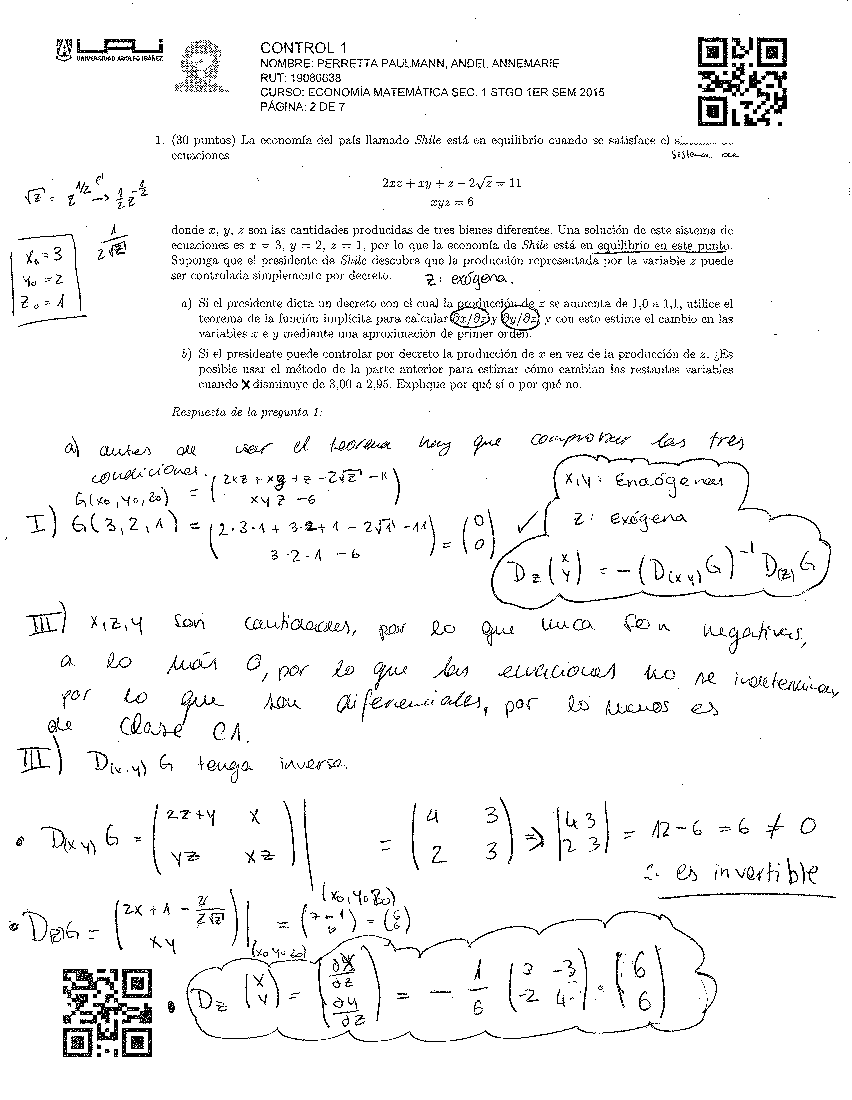 UNIVERSIDAD ADOLFO IBÁÑEZ
CONTROL 1
NOMBRE: PERRETTA PAULMANN, ANDEL ANNEMARIE
RUT: 19086638
CURSO: ECONOMÍA MATEMÁTICA SEC. 1 STGO 1ER SEM 2015
PÁGINA: 2 DE 7
1. (30 puntos) La economía del país llamado Shile está en equilibrio cuando se satisface el
ecuaciones
sistema de
2xz + xy + z − 2√z = 11
xyz = 6
√z = z^1/2 → 1/2 z^-1/2
1/2√z
x₀ = 3
y₀ = 2
z₀ = 1
donde x, y, z son las cantidades producidas de tres bienes diferentes. Una solución de este sistema de
ecuaciones es x = 3, y = 2, z = 1, por lo que la economía de Shile está en equilibrio en este punto.
Suponga que el presidente de Shile descubre que la producción representada por la variable z puede
ser controlada simplemente por decreto.
z: exógena.
a) Si el presidente dicta un decreto con el cual la producción de z se aumenta de 1,0 a 1,1, utilice el
teorema de la función implícita para calcular ∂x/∂z y ∂y/∂z y con esto estime el cambio en las
variables x e y mediante una aproximación de primer orden.
b) Si el presidente puede controlar por decreto la producción de x en vez de la producción de z. ¿Es
posible usar el método de la parte anterior para estimar cómo cambian las restantes variables
cuando x disminuye de 3,00 a 2,95. Explique por qué sí o por qué no.
Respuesta de la pregunta 1:
a) antes de usar el teorema hay que comprobar las tres
condiciones.
G(x₀, y₀, z₀) = (2xz + xy + z − 2√z − 11
xyz − 6)
I) G(3, 2, 1) = (2·3·1 + 3·2 + 1 − 2√1 − 11
3·2·1 − 6) = (0
0) ✓
x, y: Endógenas
z: Exógena
Dz (x
y) = −(D(x y) G)⁻¹ D(z) G
III) x, z, y son cantidades, por lo que nunca son negativas,
a lo más 0, por lo que las ecuaciones no se indeterminan,
por lo que son diferenciales, por lo menos es
de clase C1.
III) D(x,y) G tenga inversa.
• D(x y) G = (2z+y x
yz xz)| = (4 3
2 3) ⇒ |4 3
2 3| = 12 − 6 = 6 ≠ 0
∴ es invertible
(x₀, y₀ z₀)
• D(z) G = (2x + 1 − 2/2√z
xy)|(x₀ y₀ z₀) = (7 − 1
6) = (6
6)
• Dz (x
y) = (∂x/∂z
∂y/∂z) = − 1/6 (3 −3
−2 4) · (6
6)